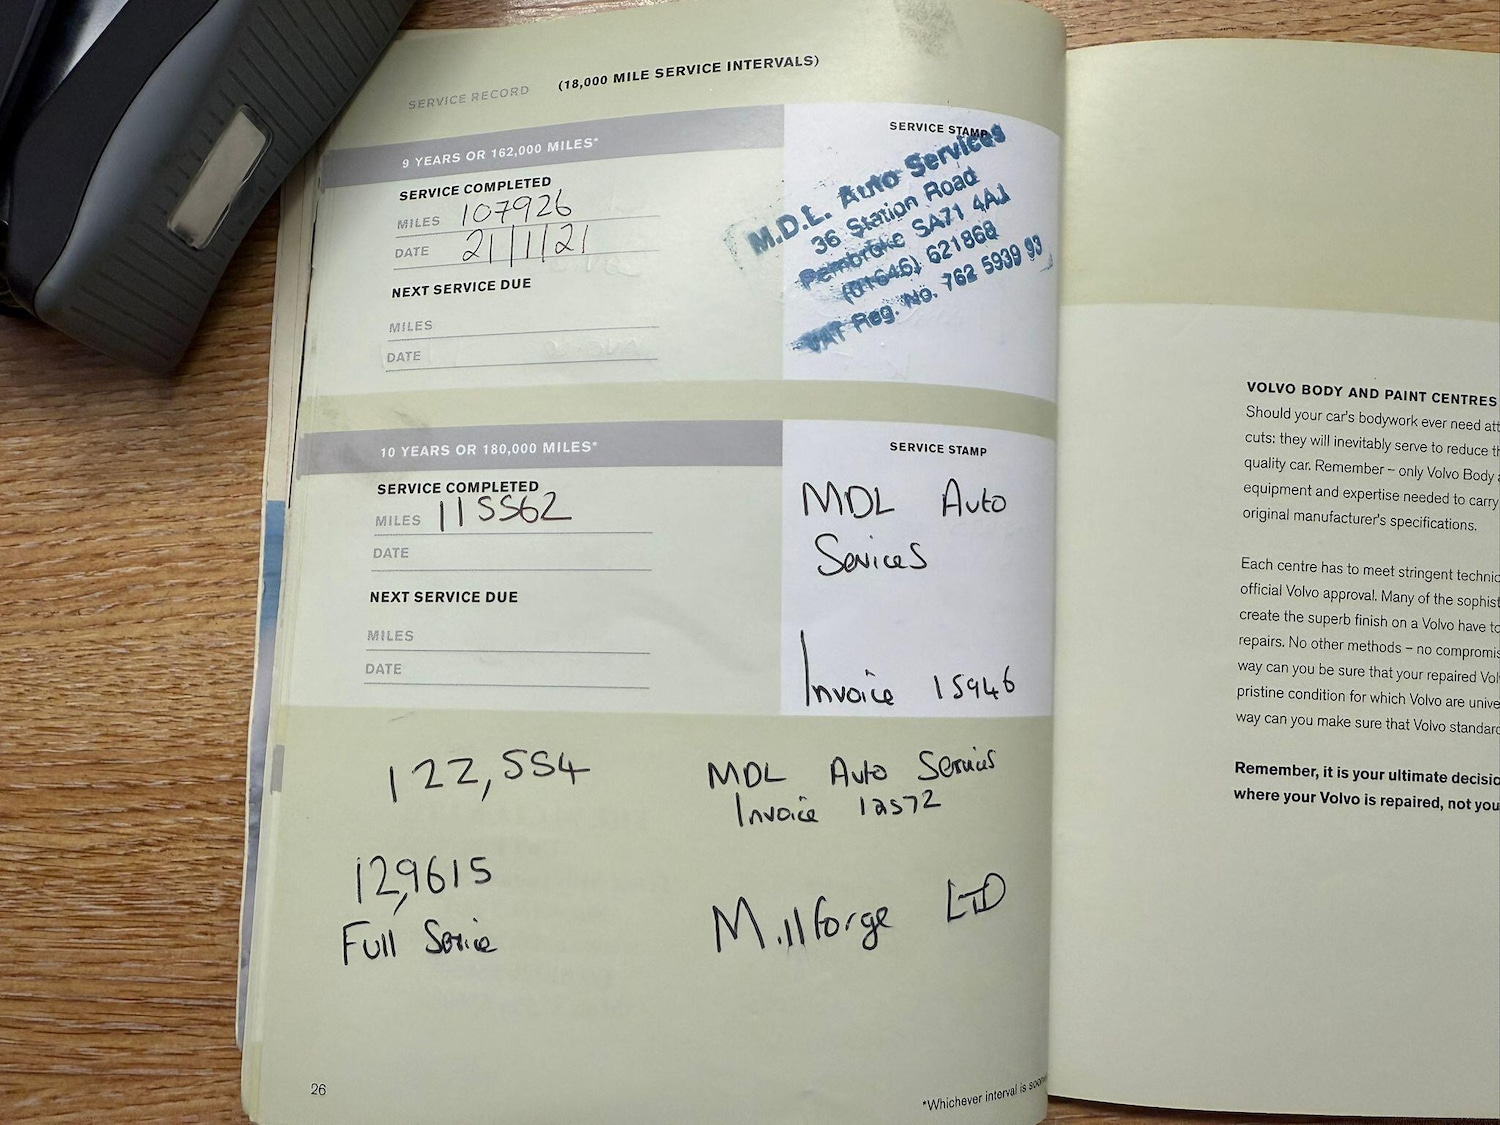 SERVICE RECORD (18,000 MILE SERVICE INTERVALS)
9 YEARS OR 162,000 MILES*
SERVICE COMPLETED
MILES 107926
DATE 21/1/21
NEXT SERVICE DUE
MILES
DATE
SERVICE STAMP
M.D.L. Auto Services
36 Station Road
Pembroke SA71 4AJ
(01646) 621868
VAT Reg. No. 762 5939 93
10 YEARS OR 180,000 MILES*
SERVICE COMPLETED
MILES 115562
DATE
NEXT SERVICE DUE
MILES
DATE
SERVICE STAMP
MDL Auto
Services
Invoice 15946
122,554
MDL Auto Services
Invoice 12572
129,615
Full Service
Millforge LTD
26
*Whichever interval is
VOLVO BODY AND PAINT CENTRES
Should your car's bodywork ever need
cuts: they will inevitably serve to reduce
quality car. Remember – only Volvo Body
equipment and expertise needed to carry
original manufacturer's specifications.
Each centre has to meet stringent
official Volvo approval. Many of the
create the superb finish on a Volvo have
repairs. No other methods – no
way can you be sure that your repaired
pristine condition for which Volvo are
way can you make sure that Volvo
Remember, it is your ultimate
where your Volvo is repaired, not